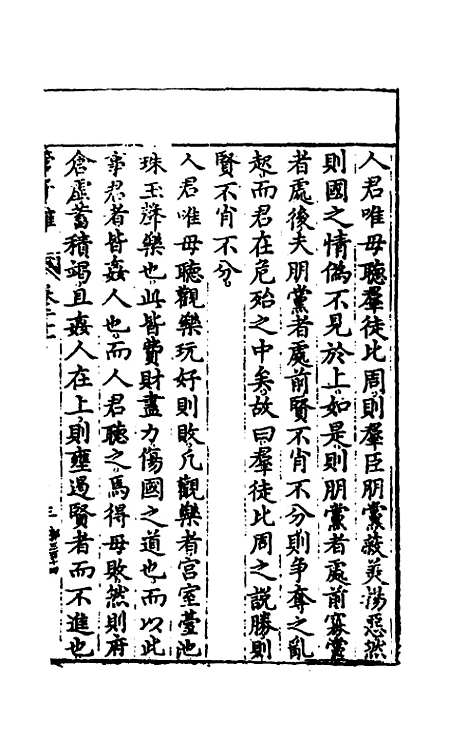 人君唯毋聽羣徒比周則羣臣朋黨蔽美揚惡然
則國之情僞不見於上如是則朋黨者處前寡黨
者處後夫朋黨者處前賢不肖不分則爭奪之亂
起而君在危殆之中矣故曰羣徒比周之說勝則
賢不肖不分
人君唯毋聽觀樂玩好則敗凡觀樂者宮室臺池
珠玉聲樂也此皆費財盡力傷國之道也而以此
事君者皆姦人也而人君聽之焉得毋敗然則府
倉虛蓄積竭且姦人在上則壅遏賢者而不進也